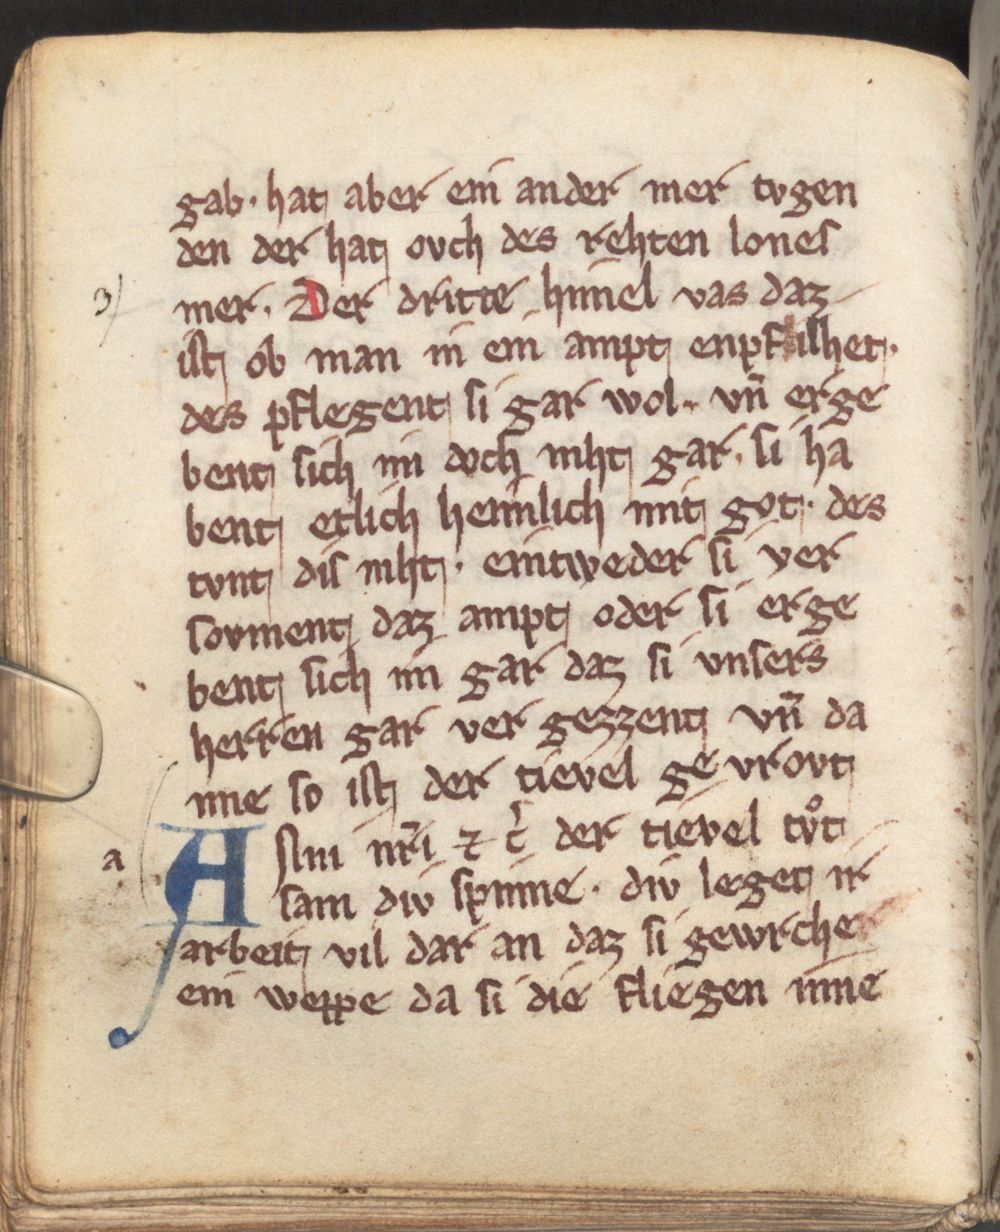 gab. hat aber ein ander mer tvgen
den der hat ovch des rehten lones
3)
mer. Der dritte himel vas daz
ist ob man in ein ampt enpfilhet.
des pflegent si gar wol. vn̄ erge
bent sich im doch niht gar. si ha
bent etlich heimlich mit got. des
tvnt dis niht. eintweder si ver
sovment daz ampt oder si erge
bent sich im gar daz si vnsers
herren gar ver gezzent vn̄ da
nne so ist der tievel ge vrovt
a
Aſini nr̄i ⁊ c̄ der tievel tv̊t
sam div spinne. div leget ir
arbeit vil dar an daz si gewrche
ein weppe da si die fliegen inne